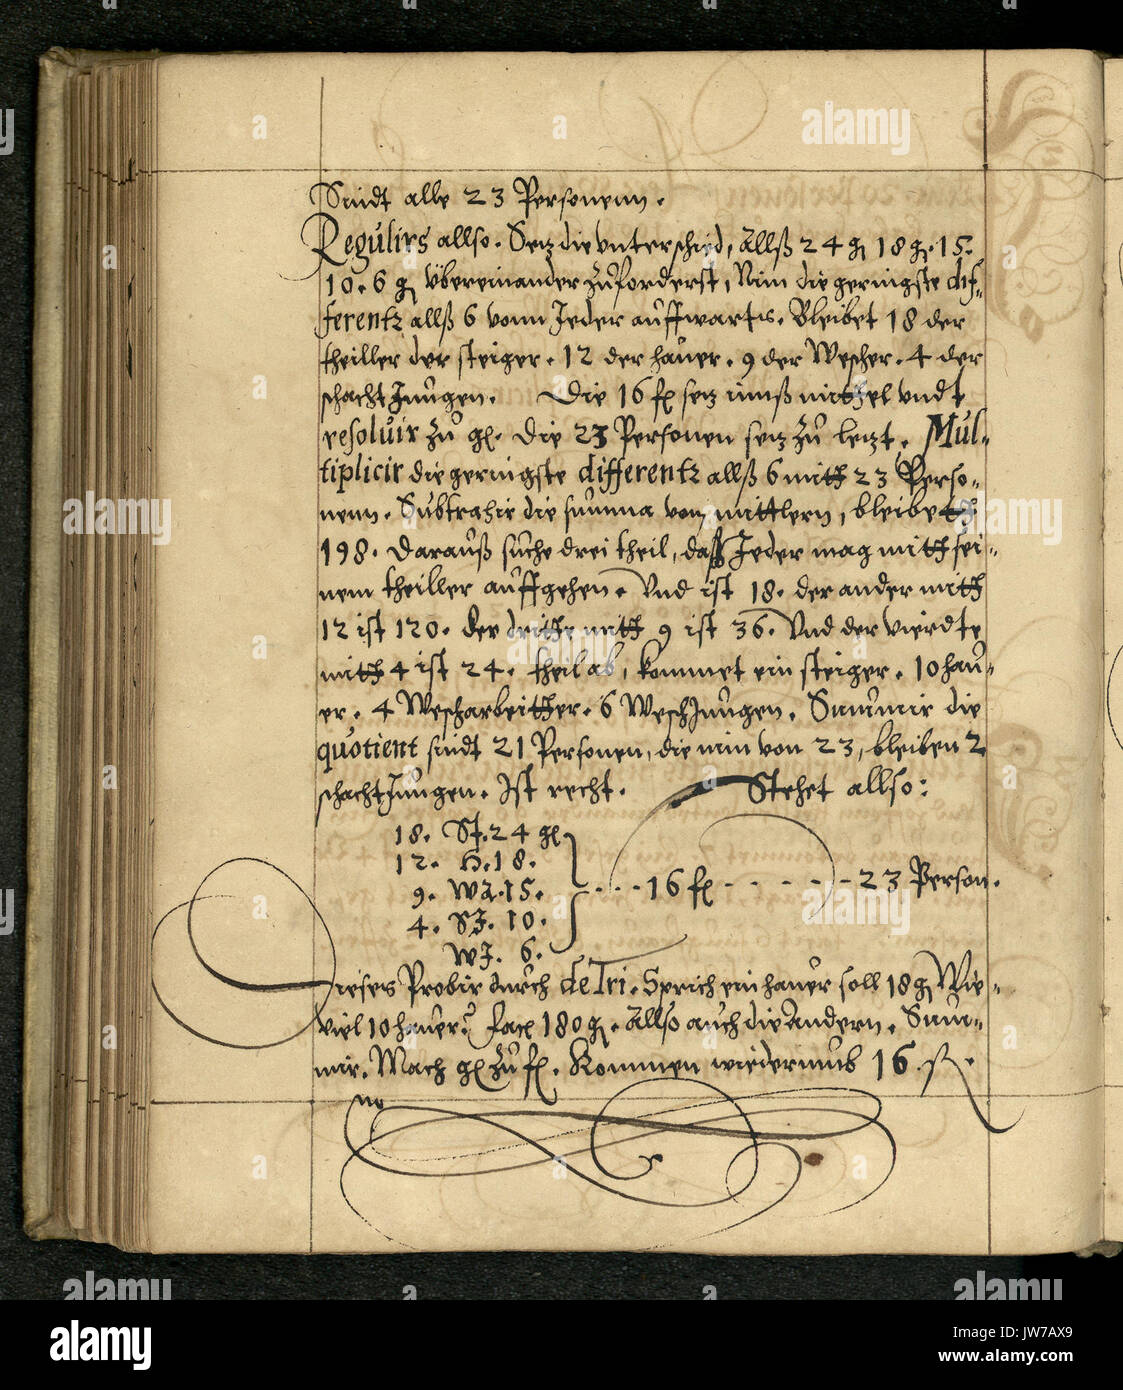 Sindt alle 23 Personenn.
Regulirs allso. Setz die unterschied, Allß 24 gl 18 gl. 15.
10. 6 gl übereinander zuforderst, Nim die geringste dif-
ferentz allß 6 vonn Jeder auffwarts. Bleibet 18 der
theiller der steiger. 12 der hauer. 9 der Wescher. 4 der
schacht Jungen. Die 16 fl setz inns mittel undt
resoluir zu gl. Die 23 Personen setz zu letzt. Mul-
tiplicir die geringste differentz allß 6 mitt 23 Perso-
nenn. Subtrahir die summa von mittlern, bleibett
198. Darauß suche drei theil, daß Jeder mag mitt sei-
nem theiller auffgehen. Und ist 18. der ander mitt
12 ist 120. der dritte mitt 9 ist 36. Und der vierdte
mitt 4 ist 24. theil ab, kommet ein steiger. 10 hau-
er. 4 Wescharbeitter. 6 WeschJungen. Summir die
quotient sindt 21 Personen, die nim von 23, bleiben 2
schachtJungen. Ist recht. Stehet allso:
18. St. 24 gl
12. H. 18.
9. WA. 15. .... 16 fl ..... 23 Person.
4. SJ. 10.
WJ. 6.
Dieses Probir durch deTri. Sprich ein hauer soll 18 gl Wie-
viel 10 hauer? fac 180 gl. Allso auch die Andern. Sum-
mir. Mach gl zu fl. Kommen wiederumb 16 fl.
alamy
alamy
JW7AX9
www.alamy.com